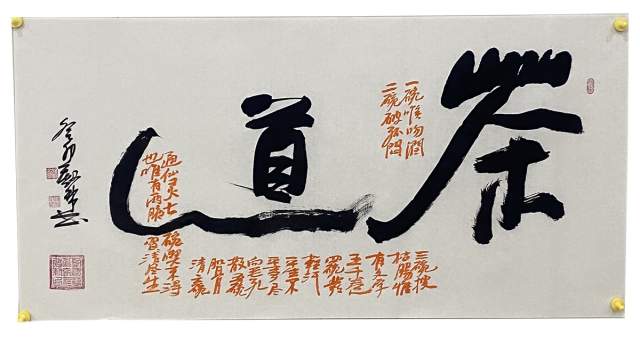 茶道
一碗喉吻潤
二碗破孤悶
三碗搜
枯腸惟
有文字
五千卷
四碗發
輕汗
平生不
平事尽
向毛孔
散五碗
肌骨
清六碗
通仙灵七碗喫不得
也唯有兩腋習清風生
癸卯